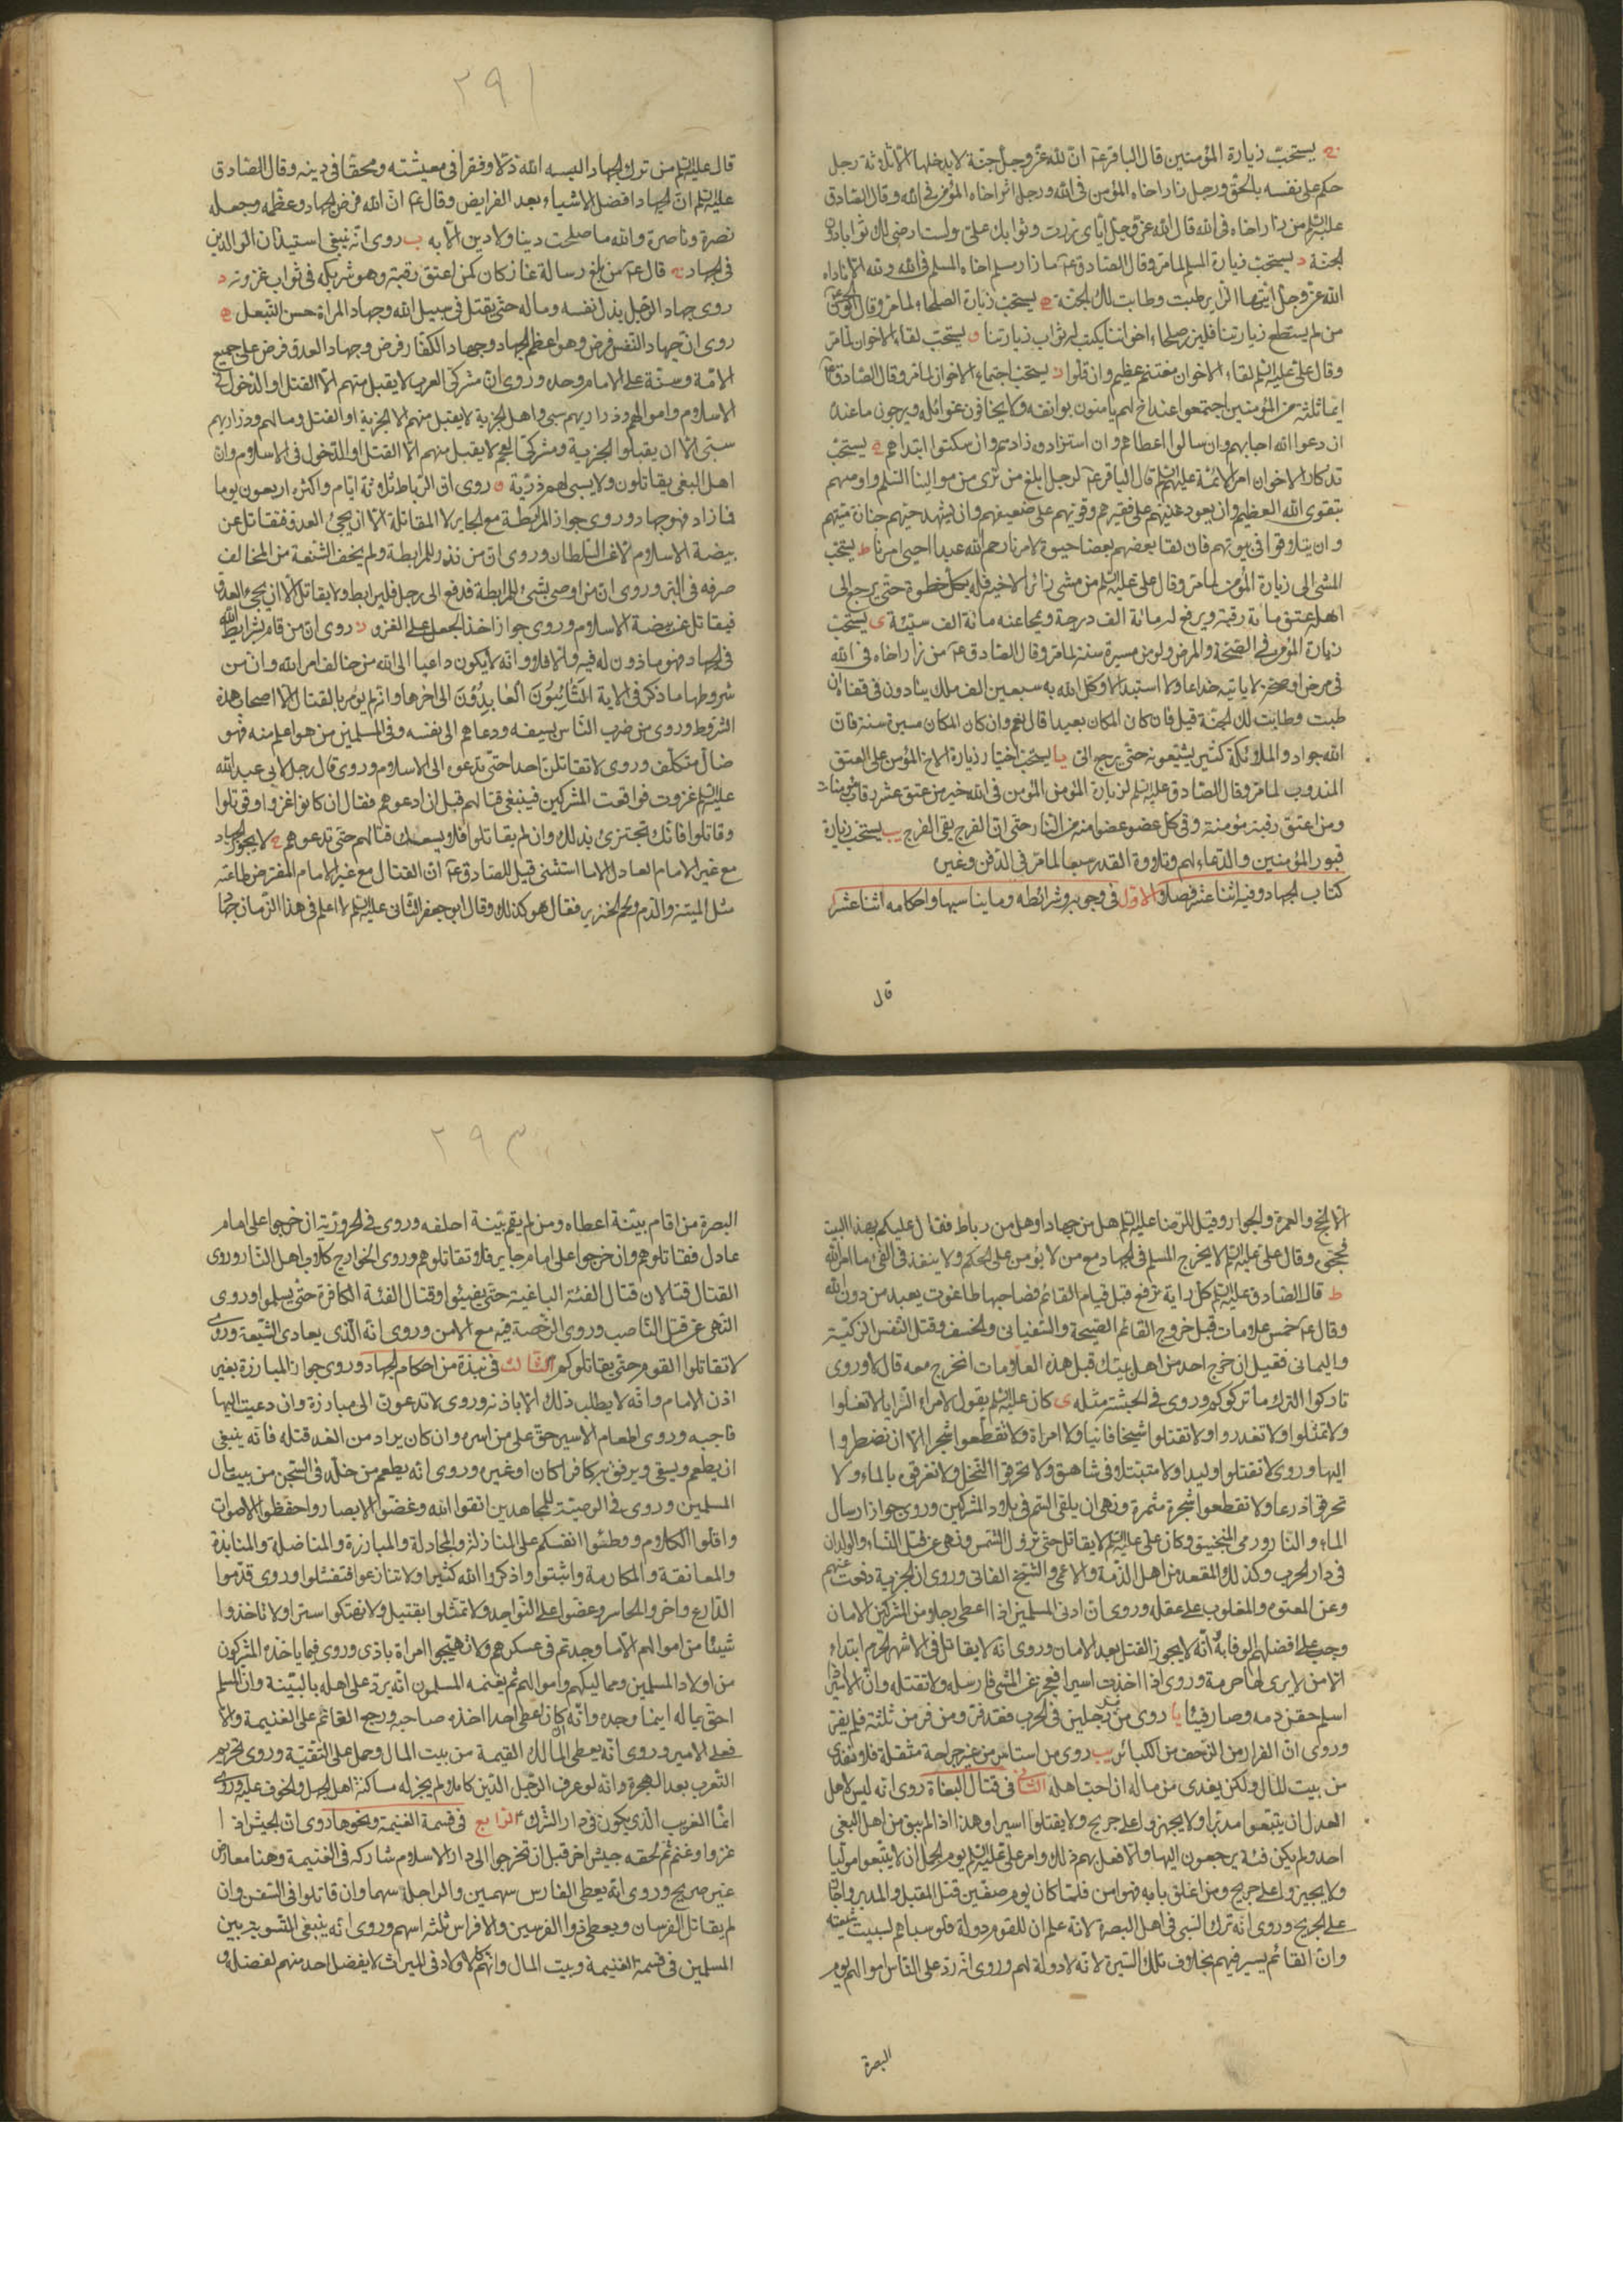 ج يستحبّ زيارة المؤمنين قال الباقر ع انّ لله عزّ وجلّ جنّة لا يدخلها الّا ثلاثة رجل
حكم على نفسه بالحقّ ورجل زار اخاه المؤمن فى الله ورجل اثر اخاه المؤمن فى الله وقال الصّادق
عليه السّلم من زار اخاه فى الله قال الله عزّ وجلّ ايّاى زرت وثوابك علىّ ولست ارضى لك ثوابا دون
الجنّة د يستحبّ زيارة المسلم لما مرّ وقال الصّادق ع ما زار مسلم اخاه المسلم فى الله ولله الّا ناداه
الله عزّ وجلّ ايّها الزاير طبت وطابت لك الجنّة ه يستحبّ زيارة الصلحاء لما مرّ وقال
من لم يستطع زيارتنا فليزر صلحاء اخواننا يكتب له ثواب زيارتنا و يستحبّ لقاء الاخوان لما مرّ
وقال على عليه السّلم لقاء الاخوان مغنم عظيم وان قلّوا ز يستحبّ اجتماع الاخوان لما مرّ وقال الصّادق ع
ايّما ثلثة من المؤمنين اجتمعوا عند اخ لهم يامنون بوائقه ولا يخافون غوائله ويرجون ما عنده
ان دعوا الله اجابهم وان سالوا اعطاهم وان استزادوه زادهم وان سكتوا ابتداهم ح يستحبّ
تذكار الاخوان امر الائمّة عليهم السّلم قال الباقر ع لرجل ابلغ من ترى من موالينا السّلم واوصهم
بتقوى الله العظيم وان يعود غنيّهم على فقيرهم وقويّهم على ضعيفهم وان يشهد حيّهم جنازة ميّتهم
وان يتلاقوا فى بيوتهم فان لقا بعضهم بعضا حيوة لامرنا رحم الله عبدا احيى امرنا ط يستحبّ
المشى الى زيارة المؤمن لما مرّ وقال على عليه السّلم من مشى زائرا لاخيه فله بكلّ خطوة حتّى يرجع الى
اهله عتق مائة رقبة ويرفع له مائة الف درجة ويمحا عنه مائة الف سيّئة ى يستحبّ
زيارة المؤمن فى الصّحّة والمرض ولو من مسيرة سنة لما مرّ وقال الصّادق ع من زار اخاه فى الله
فى مرض او صحّة لا ياتيه خداعا ولا استبدالا وكّل الله به سبعين الف ملك ينادون فى قفاه ان
طبت وطابت لك الجنّة قيل فان كان المكان بعيدا قال نعم وان كان المكان مسيرة سنة فانّ
الله جواد والملائكة كثير يشيّعونه حتّى يرجع الى يا يستحبّ اختيار زيارة الاخ المؤمن على العتق
المندوب لما مرّ وقال الصّادق عليه السّلم لزيارة المؤمن المؤمن فى الله خير من عتق عشر رقاب مؤمنات
ومن اعتق رقبة مؤمنة وقى كلّ عضو عضوا منه من النّار حتّى انّ الفرج يقى الفرج يب يستحبّ زيارة
قبور المؤمنين والدّعاء لهم وتلاوة القدر سبعا لما مرّ فى الدّفن وغيره
كتاب الجهاد وفيه اثنا عشر فصلا الاوّل فى وجوبه وشرائطه وما يناسبها واحكامه اثنا عشر
قال
٢٩١
قال عليه السّلم من ترك الجهاد البسه الله ذلّا وفقرا فى معيشته ومحقا فى دينه وقال الصّادق
عليه السّلم انّ الجهاد افضل الاشياء بعد الفرايض وقال ع انّ الله فرض الجهاد وعظّمه وجعله
نصره وناصره والله ما صلحت دينا ولا دين الّا به ب روى انّه ينبغى استيذان الوالدين
فى الجهاد ج قال ع من بلّغ رسالة غاز كان كمن اعتق رقبة وهو شريكه فى ثواب غزوته د
روى جهاد الرّجل بذل نفسه وماله حتّى يقتل فى سبيل الله وجهاد المراة حسن التّبعّل ه
روى انّ جهاد النّفس فرض وهو اعظم الجهاد وجهاد الكفّار فرض وجهاد العدوّ فرض على جميع
الامّة وسنّة على الامام وحده وروى انّ مشركى العرب لا يقبل منهم الّا القتل او الدّخول فى
الاسلام واموالهم وذراريهم سبى واهل الجزية لا يقبل منهم الّا الجزية او القتل ومالهم وذراريهم
سبى الّا ان يقبلوا الجزية ومشركى العجم لا يقبل منهم الّا القتل او الدّخول فى الاسلام وانّ
اهل البغى يقاتلون ولا يسبى لهم ذرّية و روى انّ الرّباط ثلاثة ايّام واكثره اربعون يوما
فما زاد فهو جهاد وروى جواز المرابطة مع الجاير لا المقاتلة الّا ان يجئ العدوّ فقاتل عن
بيضة الاسلام لا عن السّلطان وروى انّ من نذر المرابطة ولم يخف الشّنعة من المخالف
صرفه فى البرّ وروى انّ من اوصى بشئ للمرابطة فدفع الى رجل فليرابط ولا يقاتل الّا ان يجئ العدوّ
فيقاتل عن بيضة الاسلام وروى جواز اخذ الجعل على الغزو ز روى ان من قام بشرايط الله
فى الجهاد فهو ماذون له فيه والّا فلا وانّه لا يكون داعيا الى الله من خالف امر الله وانّ من
شروطها ما ذكر فى الاية التّائبون العابدون الى اخرها وانّه لم يؤمر بالقتال الّا اصحاب هذه
الشّروط وروى من ضرب النّاس بسيفه ودعاهم الى نفسه وفى المسلمين من هو اعلم منه فهو
ضالّ متكلّف وروى لا تقاتلنّ احدا حتّى تدعوه الى الاسلام وروى قال رجل لابى عبد الله
عليه السّلم غزوت فواقعت المشركين فينبغى قتالهم قبل ان ادعوهم فقال ان كانوا غزوا وقوتلوا
وقاتلوا فانّك تجتزئ بذلك وان لم يقاتلوا فلا يسعك قتالهم حتّى تدعوهم ح لا يجوز الجهاد
مع غير الامام العادل الّا ما استثنى قيل للصّادق ع انّ القتال مع غير الامام المفترض طاعته
مثل الميتة والدّم ولحم الخنزير فقال هو كذلك وقال ابو جعفر الثّانى عليه السّلم لا اعلم فى هذا الزّمان جهادا
الّا الحجّ والعمرة والجوار وقيل للرّضا عليه السّلم هل من جهاد او هل من رباط فقال عليكم بهذا البيت
فحجّوه وقال على عليه السّلم لا يخرج المسلم فى الجهاد مع من لا يؤمن على الحكم ولا ينفذ فى الفئ ما امر الله
ط قال الصّادق عليه السّلم كلّ راية ترفع قبل قيام القائم فصاحبها طاغوت يعبد من دون الله
وقال ع خمس علامات قبل خروج القائم الصّيحة والسّفيانى والخسف وقتل النّفس الزكيّة
واليمانى فقيل ان خرج احد من اهل بيتك قبل هذه العلامات انخرج معه قال لا وروى
تاركوا التّرك ما تركوكم وروى فى الحبشة مثله ى كان عليه السّلم يقول لامراء السّرايا لا تغلّوا
ولا تمثّلوا ولا تغدروا ولا تقتلوا شيخا فانيا ولا امراة ولا تقطعوا شجرا الّا ان تضطرّوا
اليها وروى لا تقتلوا وليدا ولا متبتّلا فى شاهق ولا تحرقوا النّخل ولا تغرقوه بالماء ولا
تحرقوا زرعا ولا تقطعوا شجرة مثمرة ونهى ان يلقى السّمّ فى بلاد المشركين وروى جواز ارسال
الماء والنّار ورمى المنجنيق وكان على عليه السّلم لا يقاتل حتّى تزول الشّمس ونهى عن قتل النّساء والولدان
فى دار الحرب وكذلك المقعد من اهل الذّمّة والاعمى والشّيخ الفانى وروى ان الجزية رفعت عنهم
وعن المعتوه والمغلوب على عقله وروى انّ ادنى المسلمين اذا اعطى رجلا من المشركين الامان
وجب على افضلهم الوفا به وانّه لا يجوز القتل بعد الامان وروى انّه لا يقاتل فى الاشهر الحرم ابتداء
الّا من لا يرى لها حرمة وروى اذا اخذت اسيرا فعجز عن المشى فارسله ولا تقتله وانّ الاسير اذا
اسلم حقن دمه وصار فيئا يا روى من فرّ من رجلين فى الحرب فقد فرّ ومن فرّ من ثلثة فلم يفرّ
وروى انّ الفرار من الزّحف من الكبائر يب روى من استاسر من غير جراحة مثقلة فلا يفدى
من بيت المال ولكن يفدى من ماله ان احبّ اهله الثّانى فى قتال البغاة روى انّه ليس لاهل
العدل ان يتبعوا مدبرا ولا يجهزوا على جريح ولا يقتلوا اسيرا وهذا اذا لم يبق من اهل البغى
احد ولم يكن فئة يرجعون اليها والّا فعل بهم ذلك وامر على عليه السّلم يوم الجمل ان لا يتبعوا مولّيا
ولا يجيزوا على جريح ومن اغلق بابه فهو امن فلمّا كان يوم صفّين قتل المقبل والمدبر واجاز
على الجريح وروى انّه ترك السّبى فى اهل البصرة لانّه علم ان للقوم دولة فلو سباهم لسبيت شيعته
وانّ القائم يسير فيهم بخلاف تلك السّيرة لانّه لا دولة لهم وروى انّه ردّ على النّاس اموالهم يوم
البصرة
٢٩٣
البصرة من اقام بيّنة اعطاه ومن لم يقم بيّنة احلفه وروى فى الحروريّة ان خرجوا على امام
عادل فقاتلوهم وان خرجوا على امام جاير فلا تقاتلوهم وروى الخوارج كلاب اهل النّار وروى
القتال قتالان قتال الفئة الباغية حتّى يفيئوا وقتال الفئة الكافرة حتّى يسلموا وروى
النّهى عن قتل النّاصب وروى الرّخصة فيه مع الامن وروى انّه الّذى يعادى الشّيعة وروى
لا تقاتلوا القوم حتّى يقاتلوكم الثّالث فى نبذة من احكام الجهاد وروى جواز المبارزة بغير
اذن الامام وانّه لا يطلب ذلك الّا باذنه وروى لا تدعونّ الى مبارزة وان دعيت اليها
فاجبه وروى اطعام الاسير حقّ على من اسره وان كان يراد من الغد قتله فانّه ينبغى
ان يطعم ويسقى ويرفق به كافرا كان او غيره وروى انّه يطعم من خلّد فى السّجن من بيت مال
المسلمين وروى فى الوصيّة للمجاهدين اتّقوا الله وغضّوا الابصار واحفظوا الاصوات
واقلّوا الكلام ووطّئوا انفسكم على المنازلة والمجادلة والمبارزة والمناضلة والمنابذة
والمعانقة والمكارمة واثبتوا واذكروا الله كثيرا ولا تنازعوا فتفشلوا وروى قدّموا
الدّارع واخّروا الحاسر وعضّوا على النّواجد ولا تمثّلوا بقتيل ولا تهتكوا سترا ولا تاخذوا
شيئا من اموالهم الّا ما وجدتم فى عسكرهم ولا تهيّجوا امراة باذى وروى فيما ياخذه المشركون
من اولاد المسلمين ومماليكهم واموالهم ثمّ يغنمه المسلمون انّه يردّ على اهله بالبيّنة وانّ المسلم
احقّ بماله اينما وجده وانّه ان اعطى احدا اخذه صاحبه ورجع الغانم على الغنيمة والّا
فعلى الامير وروى انّه يعطى المالك القيمة من بيت المال وحمل على التّقيّة وروى تحريم
التّعرب بعد الهجرة وانّه لو عرف الرّجل الدّين كاملا لم يجز له مساكنة اهل الجهل والخوف عليه وروى
انّما الغريب الّذى يكون فى دار الشّرك الرّابع فى قسمة الغنيمة ونحوها روى انّ الجيش اذا
غزوا وغنم ثمّ لحقه جيش اخر قبل ان تخرجوا الى دار الاسلام شاركه فى الغنيمة وهنا معارض
غير صريح وروى انّه يعطى الفارس سهمين والراجل سهما وان قاتلوا فى السّفن وان
لم يقاتل الفرسان ويعطى ذوا الفرسين والافراس ثلثة اسهم وروى انّه ينبغى التّسوية بين
المسلمين فى قسمة الغنيمة وبيت المال وانّهم كالاولاد فى الميراث لا يفضل احد منهم لفضله و